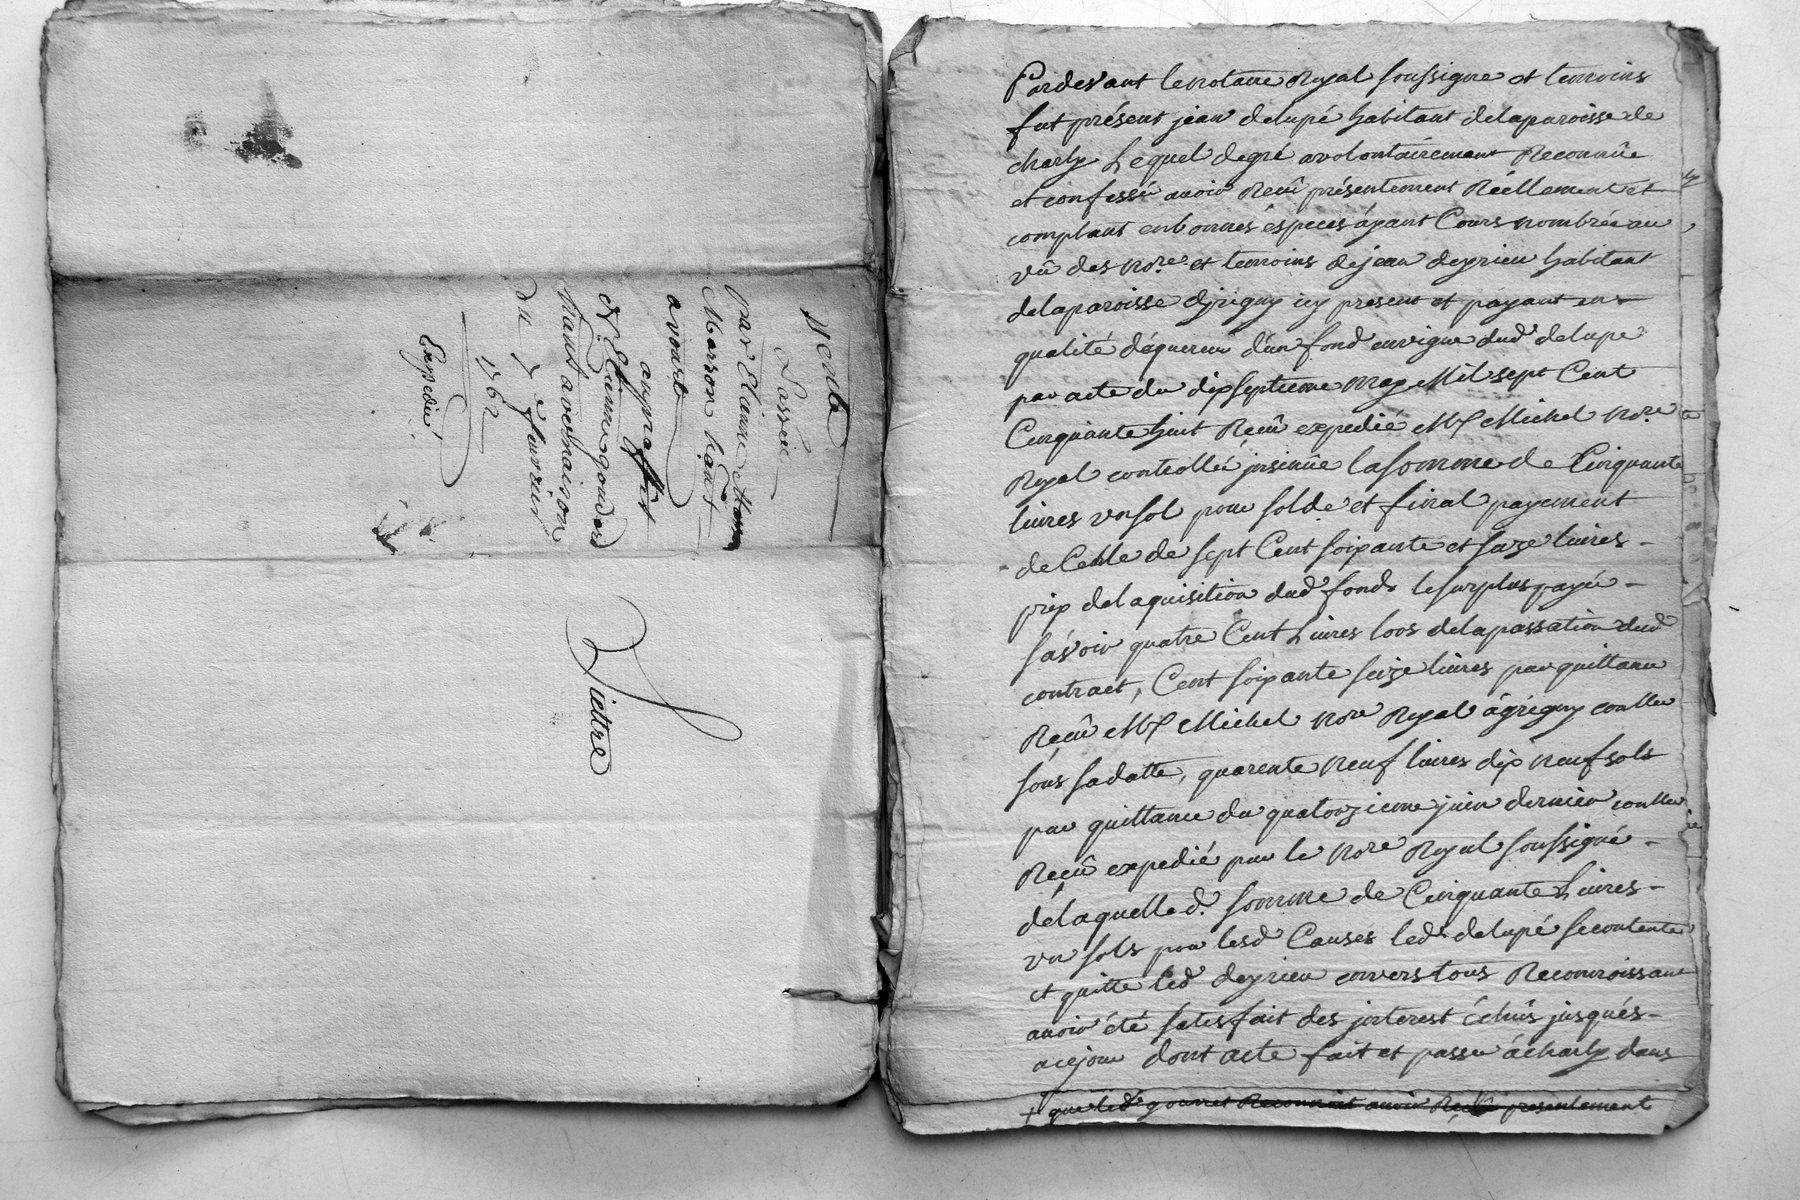 Vente
passée
par Etienne
Marron habt
a vourle
au profit
d'Etienne gondard
habt a vernaison
Du 7e fevrier
1762
Expedié
Piettre
Pardevant le notaire Royal soussigné et temoins
fut présent jean delupé habitant delaparoisse de
charly Lequel degré avolontairement Reconnûe
et confessé avoir Reçû présentement Réellement et
comptant enbonnes éspeces áyant Cours nombrée au
vû des Nore. et temoins dejean deyrieu habitant
delaparoisse djrigny icy present et payant en
qualité d'áquereur d'un fond envigne dud. delupé
par acte du dixseptieme may Mil sept Cent
Cinquante huit Reçû expedié Me Michel Nore.
Royal controllé jnsinûe lasomme de Cinquante
livres un sol pour solde et final payement
de Celle de sept Cent soixante et seize livres -
prix delaquisition dud. fonds lesurplus payé -
sávoir quatre Cent Livres lors delapassation dud.
contract, Cent soixante seize livres par quittance
Reçû Me Michel Nore Royal ágrigny conllée
sous sadatte, quarente neuf livres dix neuf sols
par quittance du quatorzieme juin dernier conllée
Reçû expedié par le Nore Royal soussigné -
délaquelled. somme de Cinquante Livres -
un sols pour lesd. Causes led. delupé secontente
et quitte led. deyrieu envers tous Reconnoissant
avoir été satisfait des jnterest échûs jusqués -
acejour dont acte fait et passé ácharly dans
+ que led. gonnet Reconnoit avoir Reçû presentement